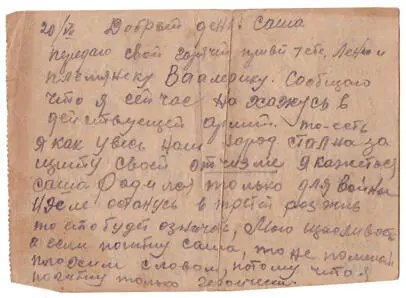 20/VII Добрый день! Саша
передаю свой горячий привет тебе, Лене и
племянеку Ваалерику. Сообщаю
что я сейчас на хажусь в
действующей армии. то-есть
я как и весь наш город стал на за
щиту своей отчизне я кажеться
саша Родился только для войны
и если останусь в третй раз жив
то это будет означать, мою щасливость
а если погибну саша, то не поминай
плохим словом, потому что я
погибну только героически.